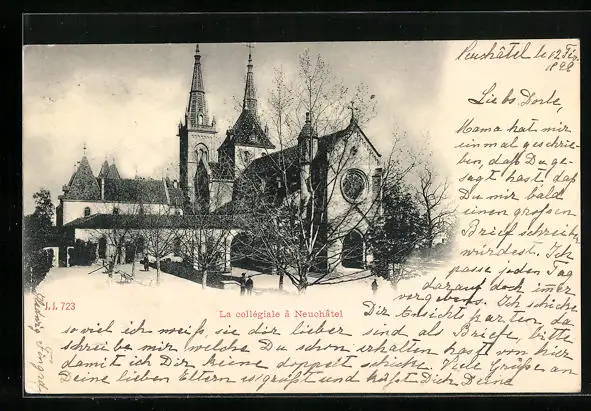 Neuchâtel le 12 Fév.
1899
Liebs Dorle,
Mama hat mir
einmal geschrie-
ben, daß Du ge-
sagt hast daß
Du mir bald
einen großen
Brief schreibe
würdest. Ich
passe jeden Tag
darauf doch imer
vergebens. Ich schicke
Dir Ansichtskarten, da
soviel ich weiß, sie dir lieber sind als Briefe, bitte
schreibe mir welche Du schon erhalten hast von hier
damit ich Dir keine doppelt schicke. Viele Grüße an
Deine lieben Eltern es grüßt und küßt Dich Deine
Hedwig
J.J. 723
La collégiale à Neuchâtel